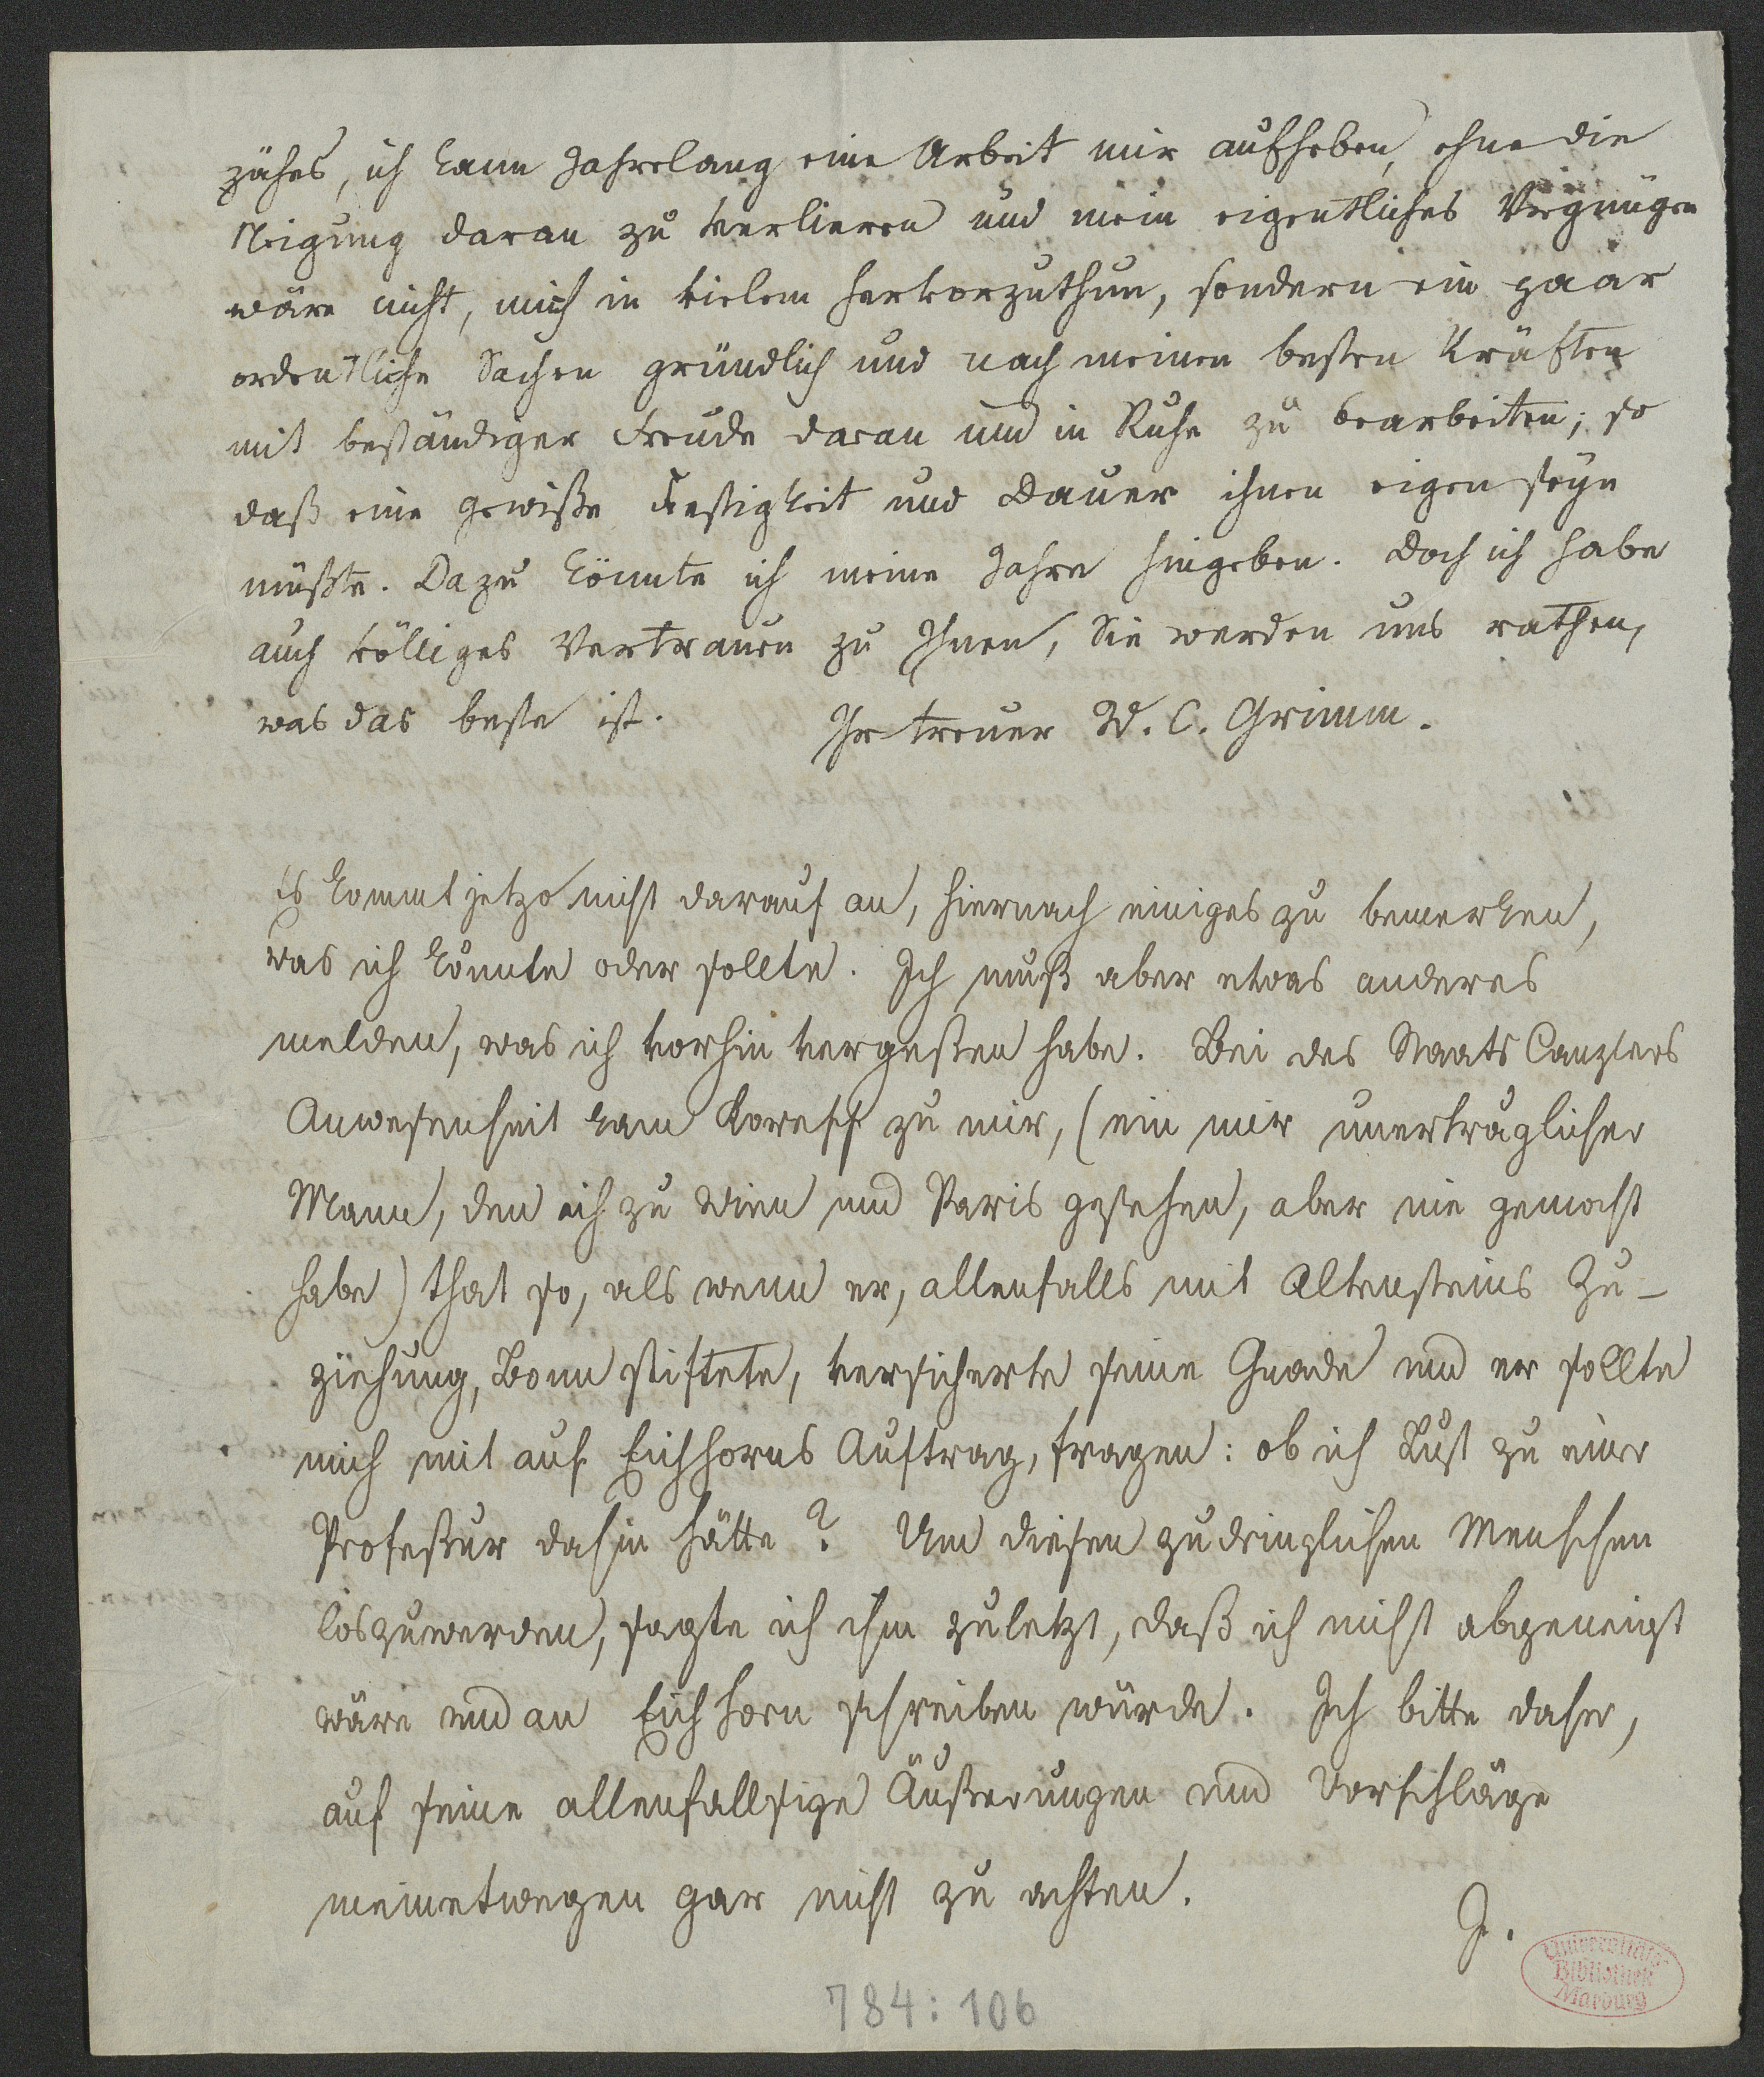 zähes, ich kann Jahrelang eine Arbeit mir aufheben, ohne die
Neigung daran zu verlieren und mein eigentliches Vergnügen
wäre nicht, mich in vielem hervorzuthun, sondern ein paar
ordentliche Sachen gründlich und nach meinen besten Kräften
mit beständiger Freude daran und in Ruhe zu bearbeiten; so
daß eine gewiße Festigkeit und Dauer ihnen eigen seyn
müßte. Dazu könnte ich meine Jahre hingeben. Doch ich habe
auch völliges Vertrauen zu Ihnen, Sie werden uns rathen,
was das beste ist. Ihr treuer W. C. Grimm.
Es kommt jetzo nicht darauf an, hiernach einiges zu bemerken,
was ich könnte oder sollte. Ich muß aber etwas anderes
melden, was ich vorhin vergeßen habe. Bei des Staats Canzlers
Anwesenheit kam Koreff zu mir, (ein mir unerträglicher
Mann, den ich zu Wien und Paris gesehen, aber nie gemocht
habe) that so, als wenn er, allenfalls mit Altensteins Zu-
ziehung, Bonn stiftete, versicherte seine Gnade und er sollte
mich mit auf Eichhorns Auftrag, fragen: ob ich Lust zu einer
Profeßur dahin hätte? Um diesen zudringlichen Menschen
loszuwerden, sagte ich ihm zuletzt, daß ich nicht abgeneigt
wäre und an Eichhorn schreiben würde. Ich bitte daher,
auf seine allenfallsige Äußerungen und Vorschläge
meinetwegen gar nicht zu achten.
J.
Universitäts-
Bibliothek
Marburg
784:106